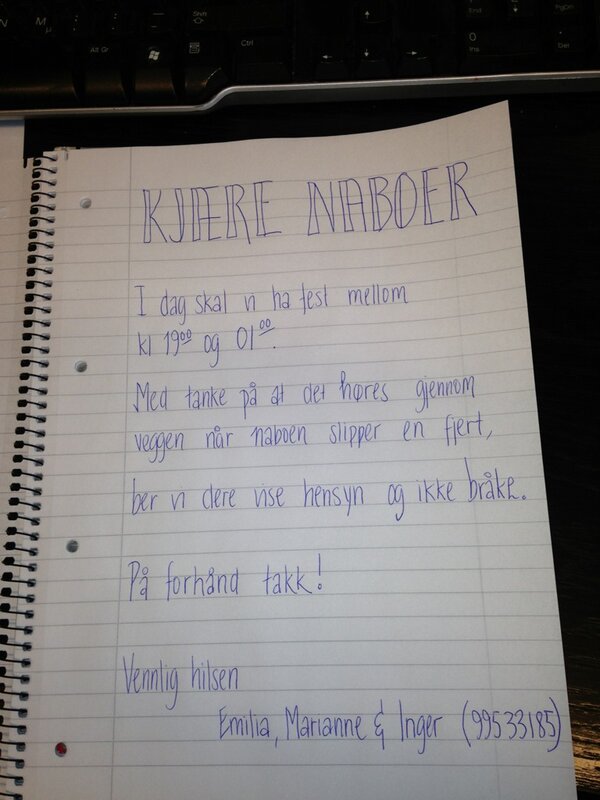 N
M
μ
Shift
End
PgDn
Alt Gr
Ctrl
0
Ins
Del
KJÆRE NABOER
I dag skal vi ha fest mellom
kl 19⁰⁰ og 01⁰⁰.
Med tanke på at det høres gjennom
veggen når naboen slipper en fjert,
ber vi dere vise hensyn og ikke bråke.
På forhånd takk!
Vennlig hilsen
Emilia, Marianne & Inger (99533185)